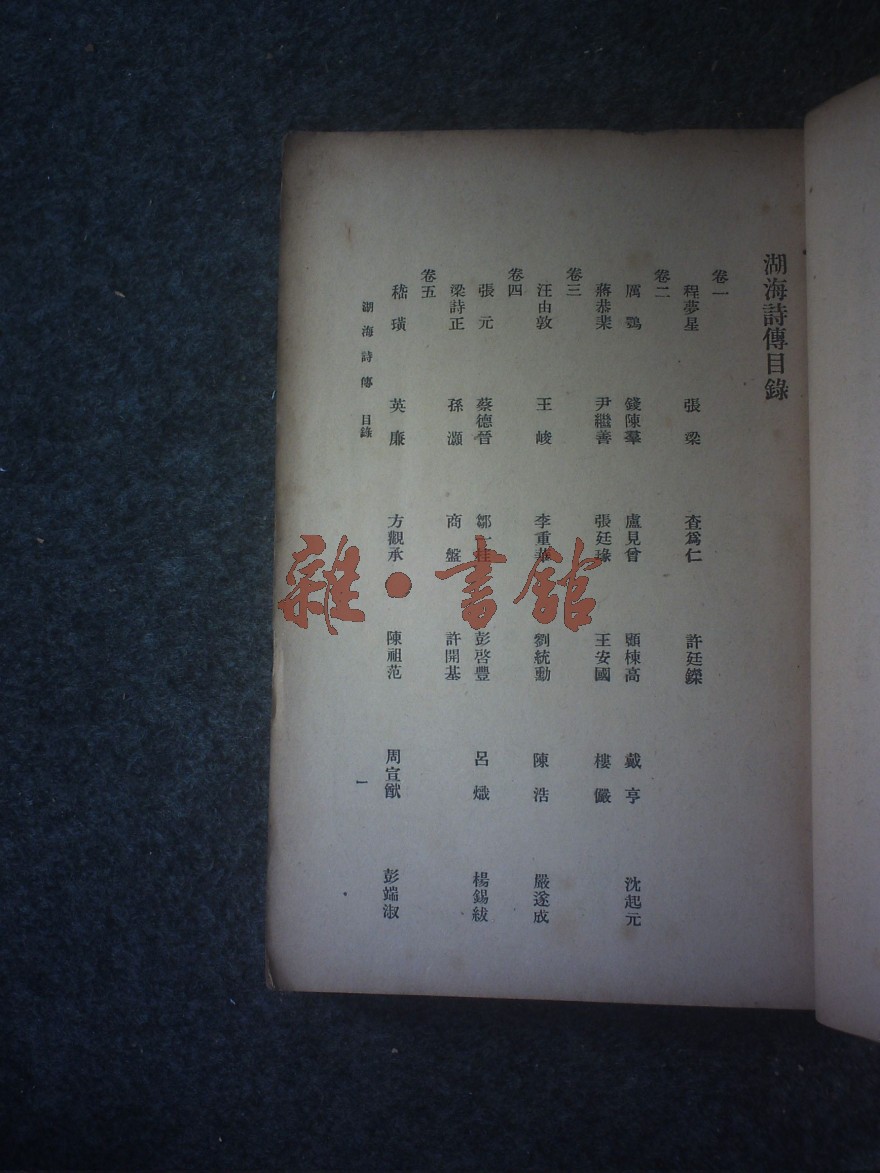 湖海詩傳目錄
卷一
程夢星 張梁 查爲仁 許廷鑅
卷二
厲鶚 錢陳羣 盧見曾 顧棟高 戴亨 沈起元
蔣恭棐 尹繼善 張廷瑑 王安國 樓儼
卷三
汪由敦 王峻 李重華 劉統勳 陳浩 嚴遂成
卷四
張元 蔡德晉 鄒一桂 彭啓豐 呂熾 楊錫紱
梁詩正 孫灝 商盤 許開基
卷五
嵇璜 英廉 方觀承 陳祖范 周宣猷 彭端淑
湖海詩傳 目錄 一
雜·書館